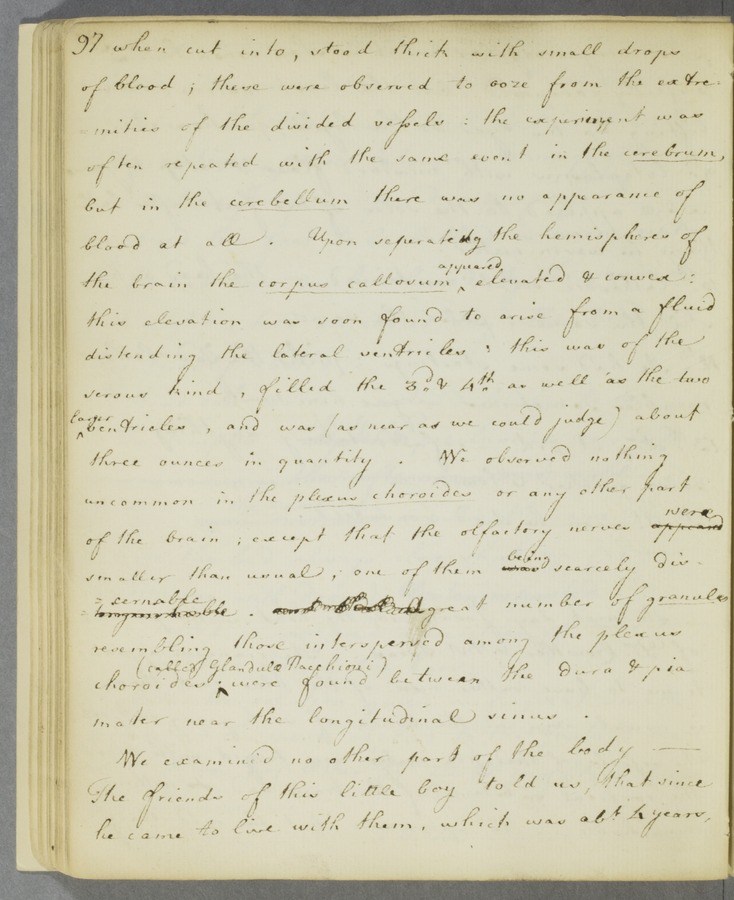 97 when cut into, stood thick with small drops
of blood; these were observed to ooze from the extre-
-mities of the divided vessels: the experiment was
often repeated with the same event in the cerebrum,
but in the cerebellum there was no appearance of
blood at all. Upon seperating the hemispheres of
appeared
the brain the corpus callosum ‸ elevated & convex:
this elevation was soon found to arise from a fluid
distending the lateral ventricles: this was of the
serous kind, filled the 3d & 4th as well as the two
larger
‸ ventricles, and was (as near as we could judge) about
three ounces in quantity. We observed nothing
uncommon in the plexus choroides or any other part
were
of the brain; except that the olfactory nerves appeared
being
smaller than usual; one of them was scarcely dis-
=cernable
. great number of granules
resembling those interspersed among the plexus
(called Glandulæ Pacchioni)
choroides ‸ were found between the dura & pia
mater near the longitudinal sinus.
We examined no other part of the body —
The friends of this little boy told us, that since
he came to live with them, which was abt 4 years,